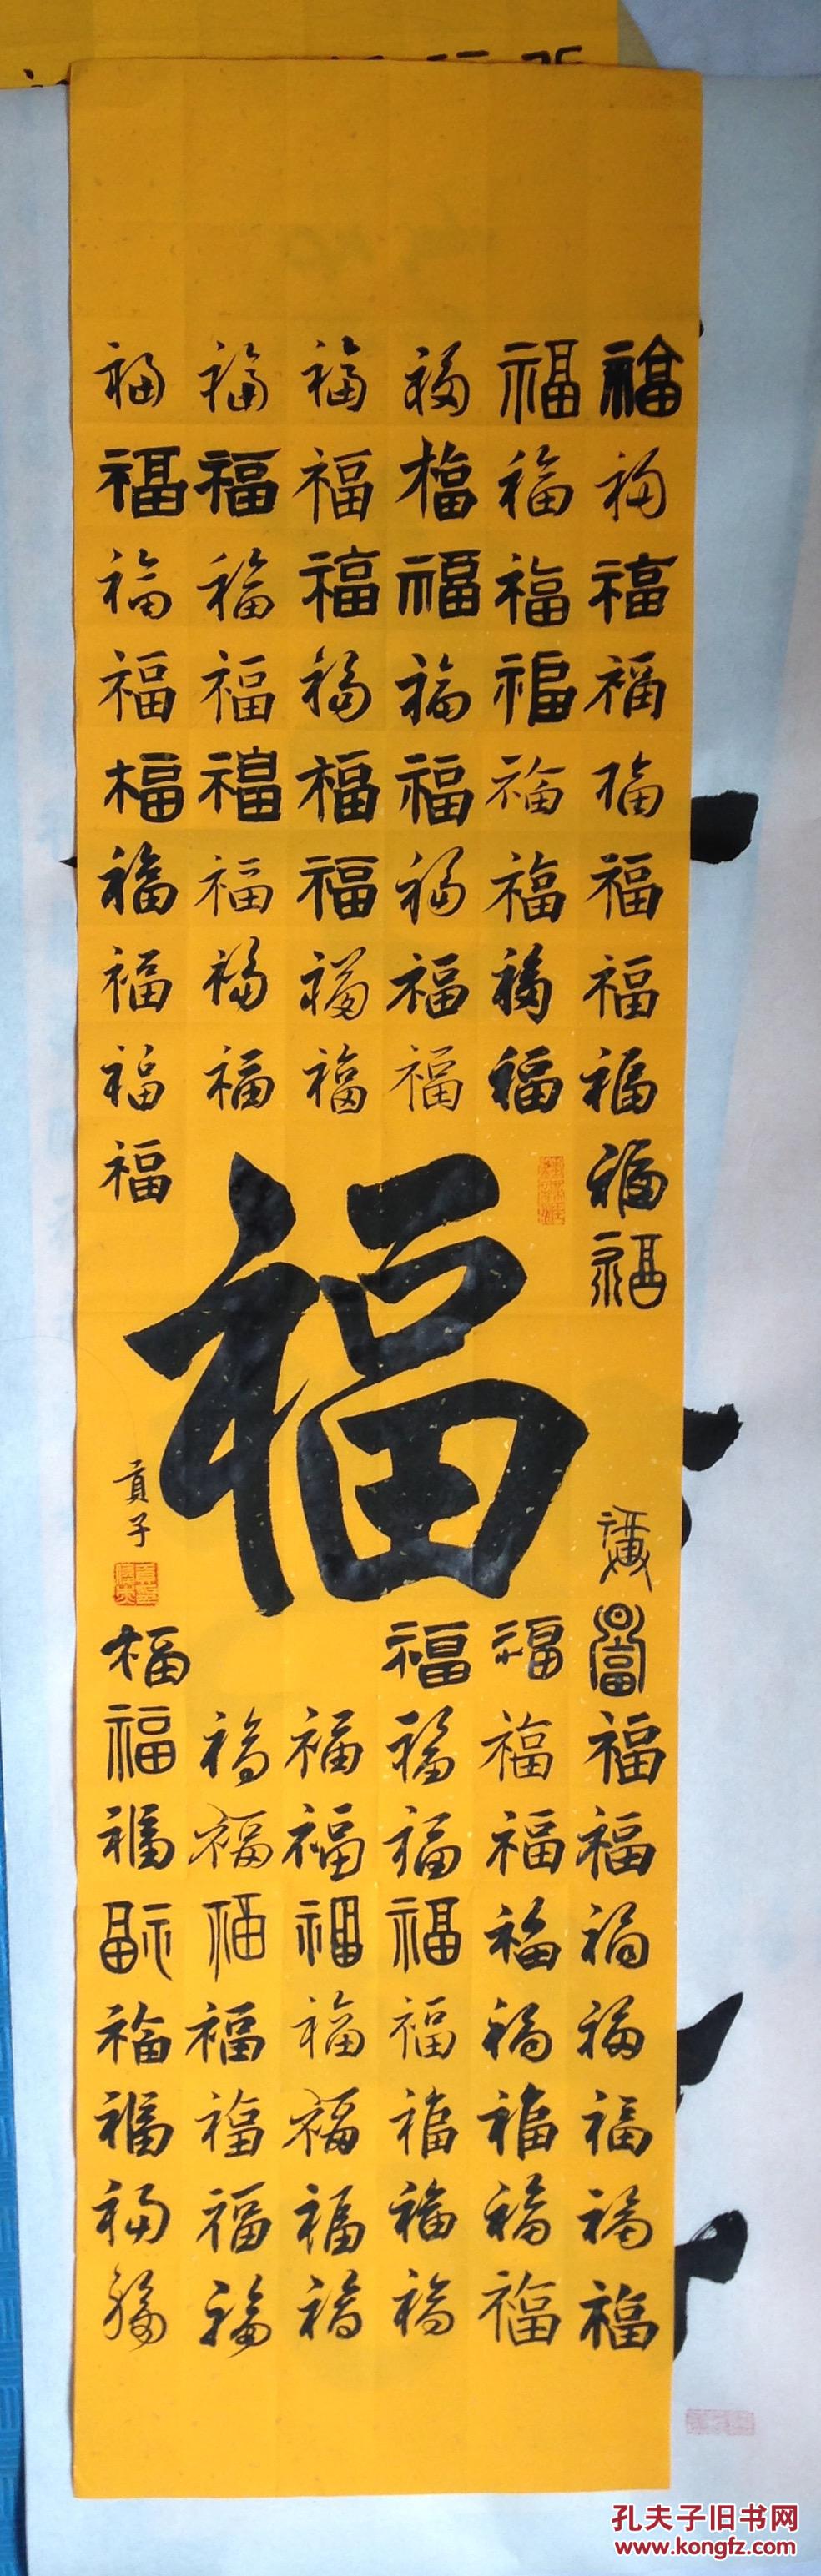 福福福福福福福福福福
福福福福福福福福
福福福福福福福福
福福福福福福福福
福福福福福福福福
福福福福福福福福福
福
貢子
福福福福福福福福福
福福福福福福福福
福福福福福福福福
福福福福福福福
福福福福福福福
福福福福福福福福
孔夫子旧书网
www.kongfz.com